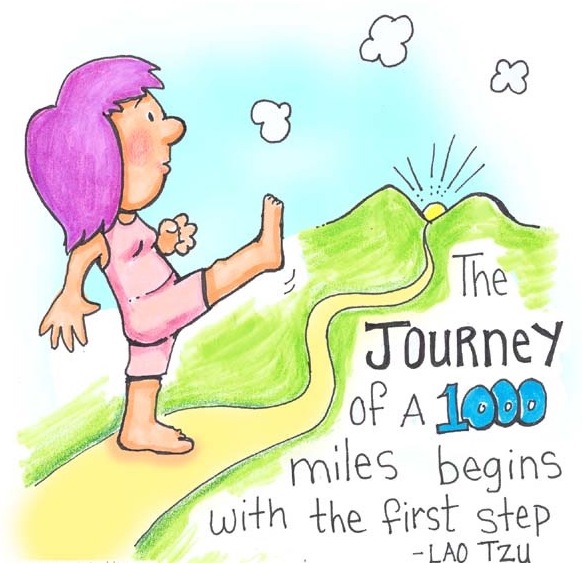 The
JOURNeY
of A 1000
miles begins
with the first step
-LAO TZU